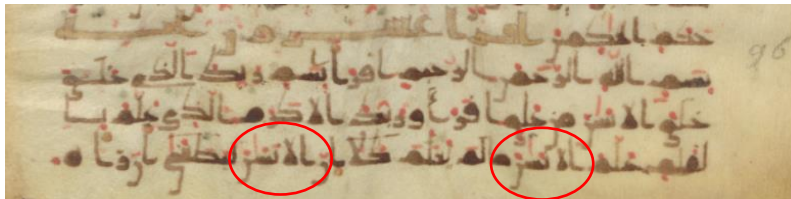 حكم الحكمين
بسم الله الرحمن الرحيم اقرا باسم ربك الذي خلق
96
خلق الانسن من علق اقرا وربك الاكرم الذي علم با
لقلم علم الانسن ما لم يعلم كلا ان الانسن ليطغى ان راه